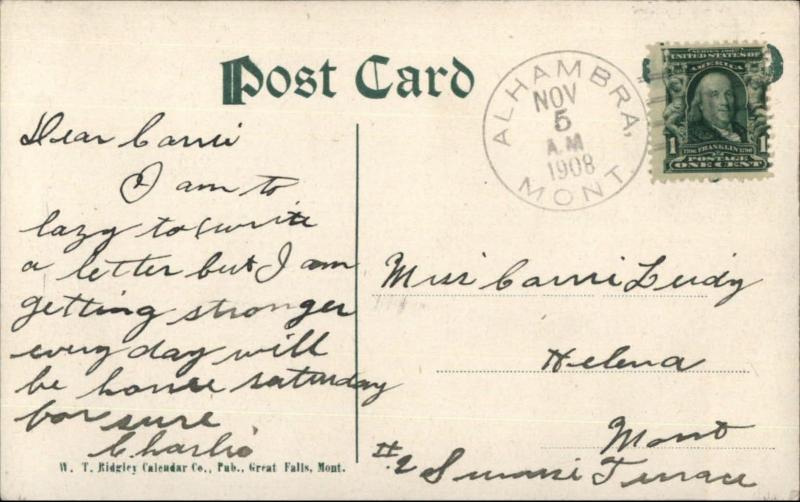 Post Card
ALHAMBRA,
NOV
5
A.M
1908
MONT.
SERIES 1902
UNITED STATES OF
AMERICA
1706 FRANKLIN 1790
1 POSTAGE 1
ONE CENT
Dear Carri
I am to
lazy to write
a letter but I am
getting stronger
every day will
be home saturday
for sure
Charlie
Miss Carri Leidy
Helena
Mont
#2 Terrace
W. T. Ridgley Calendar Co., Pub., Great Falls, Mont.